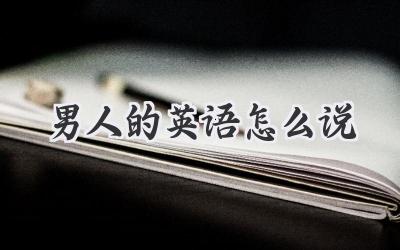 男人的英语怎么说